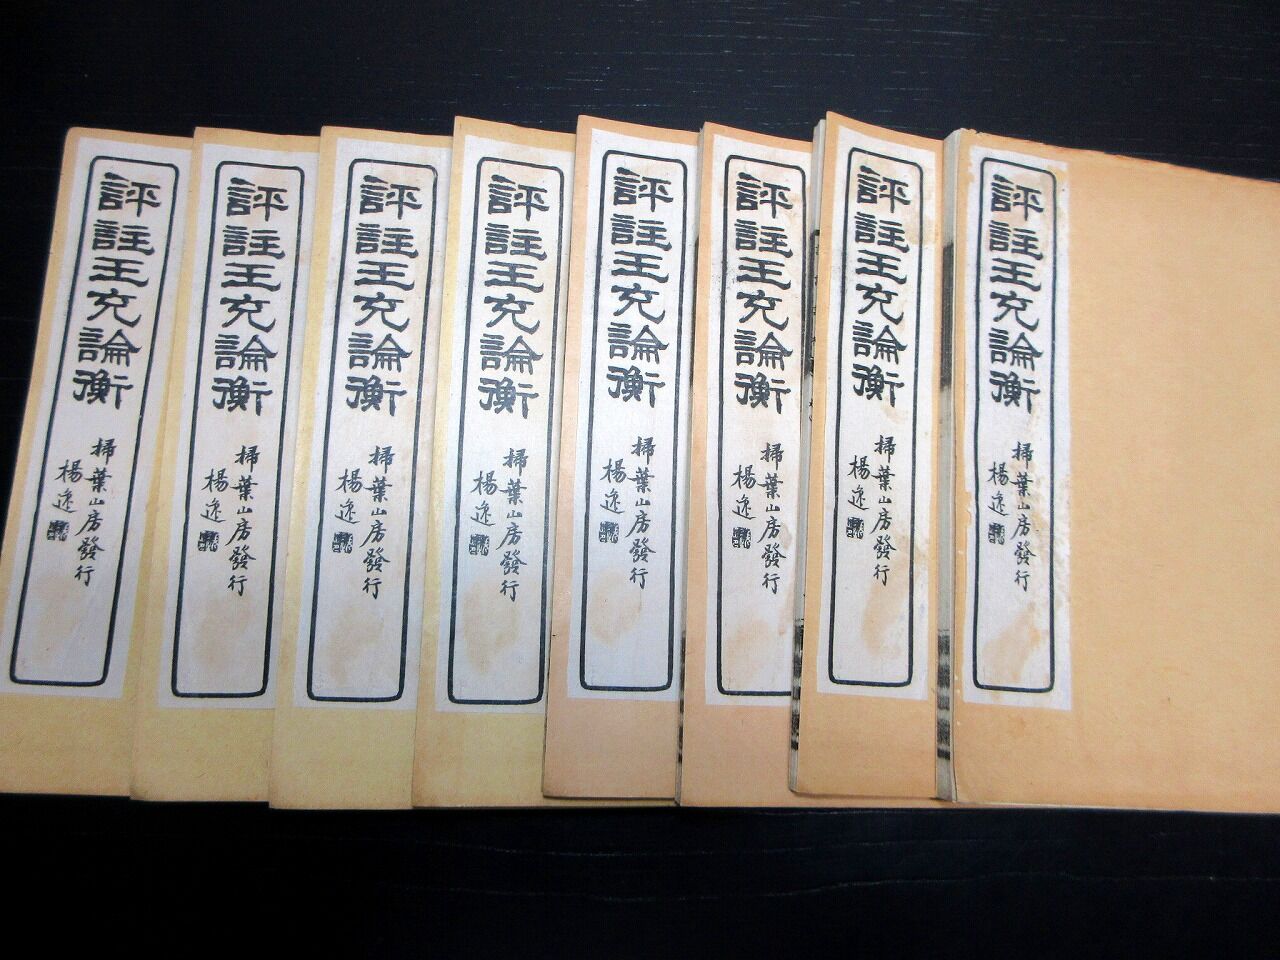 評註王充論衡
掃葉山房發行
楊逸
評註王充論衡
掃葉山房發行
楊逸
評註王充論衡
掃葉山房發行
楊逸
評註王充論衡
掃葉山房發行
楊逸
評註王充論衡
掃葉山房發行
楊逸
評註王充論衡
掃葉山房發行
楊逸
評註王充論衡
掃葉山房發行
楊逸
評註王充論衡
掃葉山房發行
楊逸